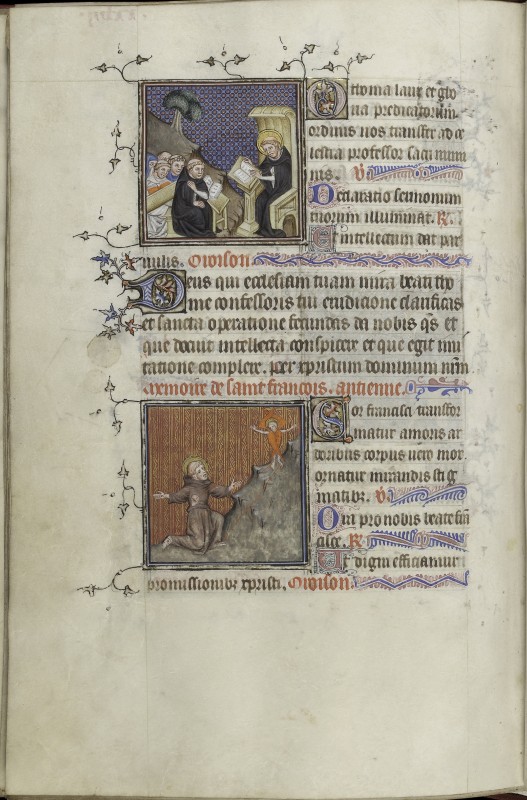 O thoma laus et glo
ria predicatorum
ordinis nos transfer ad ce
lestia professor sacri numi
nis. V.
Declaratio sermonum
tuorum illuminat. R.
Et intellectum dat par
vulis. Oroison
Deus qui ecclesiam tuam mira beati tho
me confessoris tui erudicione clarificas
et sancta operatione fecundas da nobis qs et
que docuit intellectu conspicere et que egit imi
tatione complere. per xpristum dominum nrm
Memoire de saint francois. antienne.
Cor francisci transfor
matur amoris ar
doribus corpus vero mor
ornatur mirandis stig
matibz. V.
Ora pro nobis beate fran
cisce. R.
Ut digni efficiamur
promissionibz xpristi. Oroison.